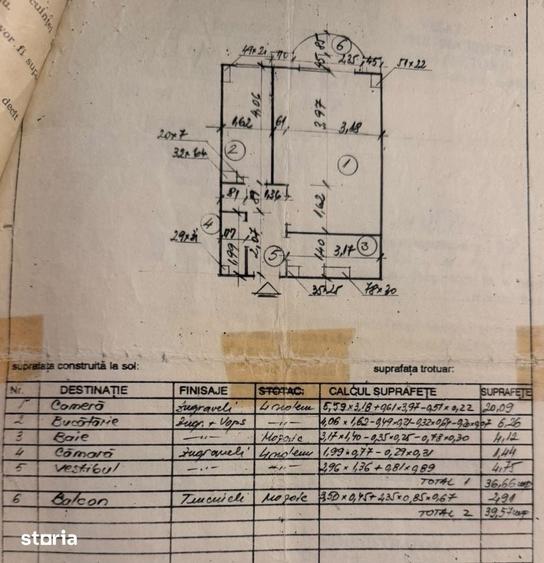 cuinței
vor fi sup
decât
49×21
70
45,85
6
2,35
45
51×22
4,06
1,62
61
3,97
3,18
20×7
2
1
81
81
1,36
1,62
4
77
1,99
2,07
5
1,40
3,17
3
35×25
78×30
suprafata construită la sol: suprafața trotuar:
Nr. DESTINAȚIE FINISAJE STOTAC: CALCUL SUPRAFEȚE SUPRAFEȚE
1 Cameră zugraveli Linoleum 5,59×3,18+0,61×3,97-0,51×0,22 20,09
2 Bucătărie zugr. + Vops —"— 6,26
3 Baie —"— Mozaic 3,17×1,40-0,35×0,25-0,78×0,30 4,12
4 Cămară zugraveli Linoleum 1,99×0,77-0,29×0,31 1,44
5 Vestibul —"— —"— 2,96×1,36+0,81×0,89 4,75
TOTAL 1 36,66 mp
6 Balcon Mozaic 3,50×0,45+2,35×0,85×0,67 2,91
TOTAL 2 39,57 mp
storia